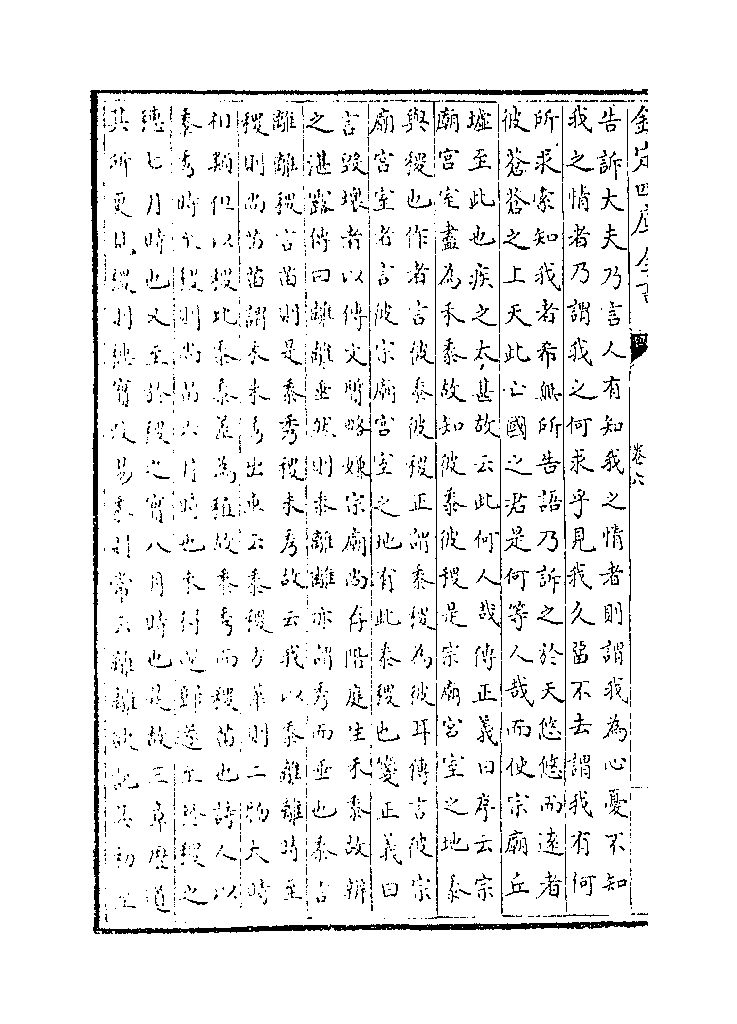 欽定四庫全書
卷六
告訴大夫乃言人有知我之情者則謂我為心憂不知
我之情者乃謂我之何求乎見我久留不去謂我有何
所求索知我者希無所告語乃訴之於天悠悠而遠者
彼蒼蒼之上天此亡國之君是何等人哉而使宗廟丘
墟至此也疾之太甚故云此何人哉傳正義曰序云宗
廟宮室盡為禾黍故知彼黍彼稷是宗廟宮室之地黍
與稷也作者言彼黍彼稷正謂黍稷為彼耳傳言彼宗
廟宮室者言彼宗廟宮室之地有此黍稷也箋正義曰
言毀壞者以傳文質略嫌宗廟尚存階庭生禾黍故辨
之湛露傳曰離離垂然則黍離離亦謂秀而垂也黍言
離離稷言苗則是黍秀稷未秀故云我以黍離離時至
稷則尚苗苗謂禾未秀出車云黍稷方華則二物大時
相類但以稷比黍黍差為稚故黍秀而稷苗也詩人以
黍秀時至稷則尚苗六月時也未得還歸遂至於稷之
穗七月時也又至於稷之實八月時也是故三章歷道
其所更見稷則穗實改易黍則常云離離欲記其初至